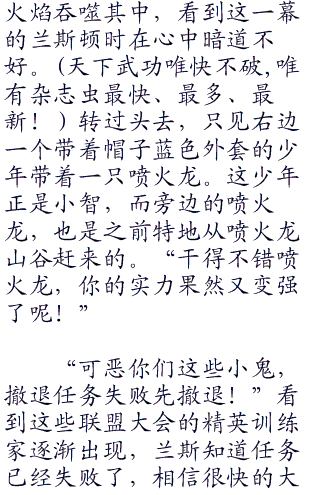 火焰吞噬其中，看到这一幕
的兰斯顿时在心中暗道不
好。(天下武功唯快不破,唯
有杂志虫最快、最多、最
新！) 转过头去，只见右边
一个带着帽子蓝色外套的少
年带着一只喷火龙。这少年
正是小智，而旁边的喷火
龙，也是之前特地从喷火龙
山谷赶来的。“干得不错喷
火龙，你的实力果然又变强
了呢！”
“可恶你们这些小鬼，
撤退任务失败先撤退！”看
到这些联盟大会的精英训练
家逐渐出现，兰斯知道任务
已经失败了，相信很快的大